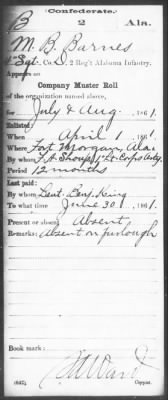 Confederate.
B 2 Ala.
M. B. Barnes
Sgt, Co. D, 2 Reg't Alabama Infantry.
Appears on
Company Muster Roll
of the organization named above,
for July & Aug, 1861.
Enlisted:
When April 1, 1861
Where Fort Morgan, Ala.
By whom F. A. Shoup, 1" Lt. Corps Arty
Period 12 months
Last paid:
By whom Lieut. Benj. King
To what time June 30, 1861.
Present or absent Absent
Remarks: Absent on furlough
Book mark:
M Ward
(642) Copyist.